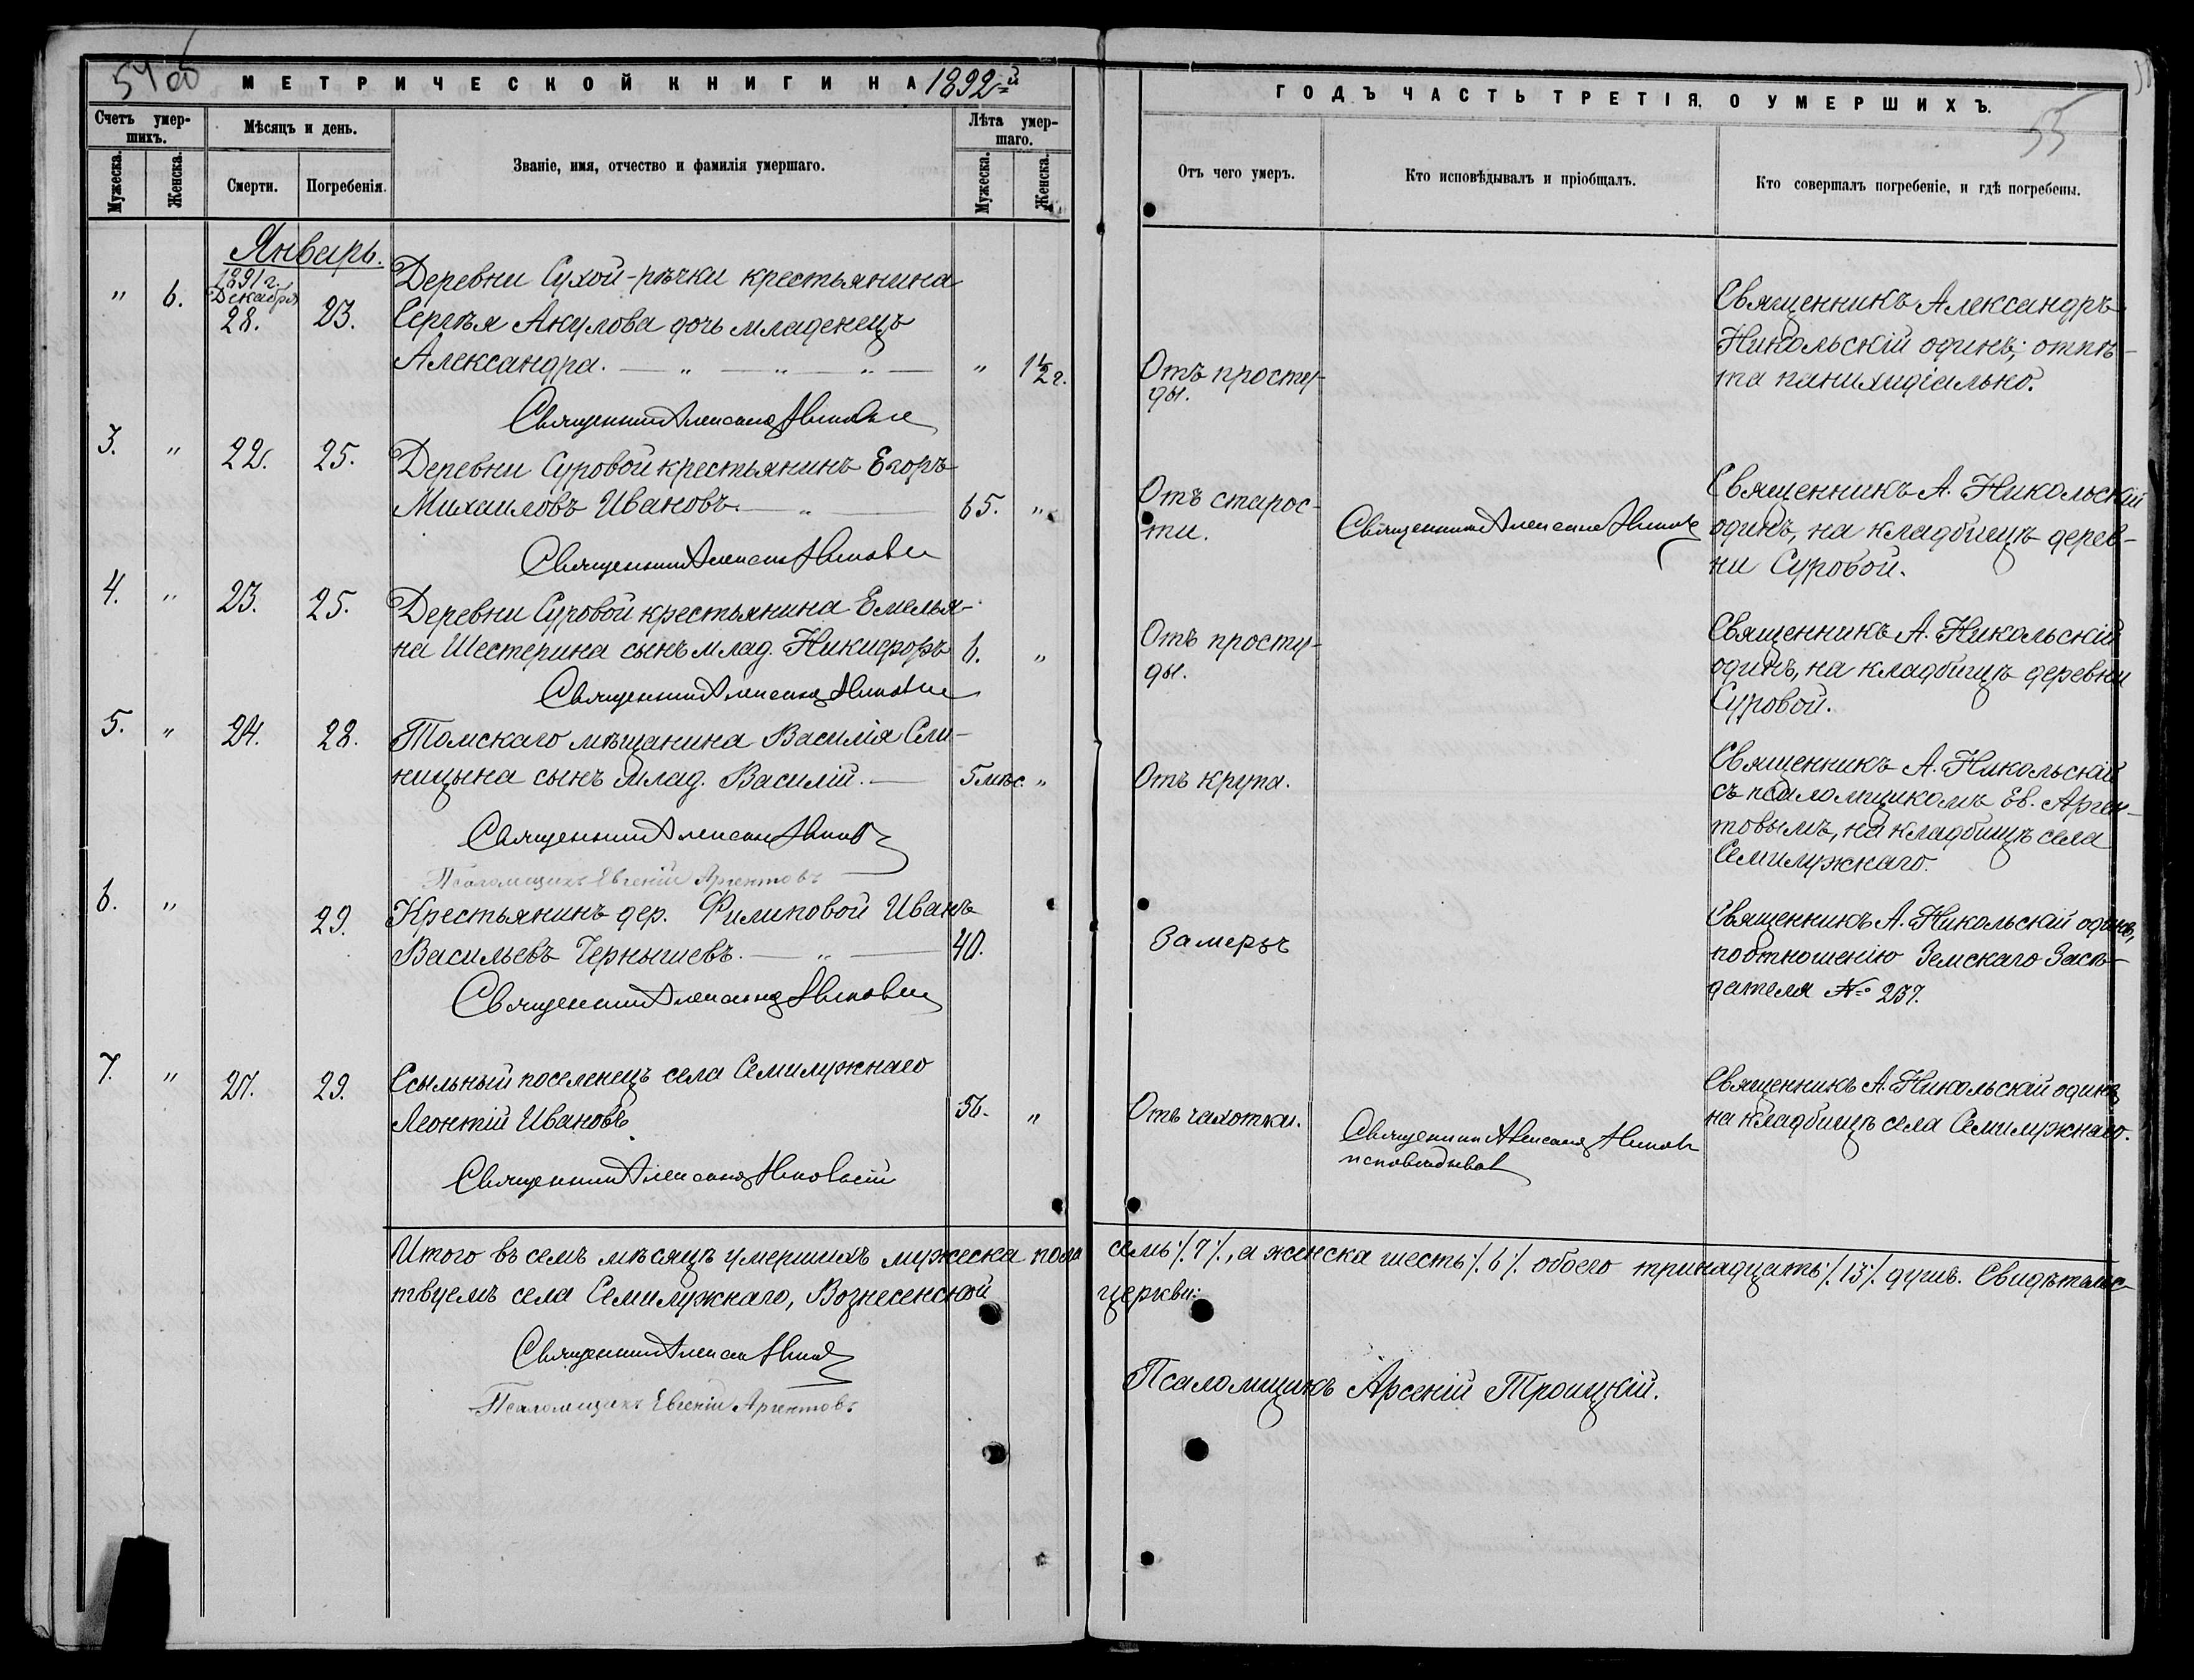 54об
МЕТРИЧЕСКОЙ КНИГИ НА 1892-й
ГОДЪ ЧАСТЬ ТРЕТІЯ, О УМЕРШИХЪ.
55
Счетъ умер-
шихъ.
Мѣсяцъ и день.
Званіе, имя, отчество и фамилія умершаго.
Лѣта умер-
шаго.
Мужеска.
Женска.
Смерти.
Погребенія.
Мужеска.
Женска.
Отъ чего умеръ.
Кто исповѣдывалъ и пріобщалъ.
Кто совершалъ погребеніе, и гдѣ погребены.
Январь.
" 6. 1891 г. Декабря 28. 23.
Деревни Сухой-рѣчки крестьянина
Сергѣя Акулова дочь младенецъ
Александра. — " — " — " — " 1½ г.
Отъ просту-
ды.
Священникъ Александръ
Никольскій одинъ; отпѣ-
та панихидіально.
Священникъ Александръ Никольскій
3. " 22. 25.
Деревни Суровой крестьянинъ Егоръ
Михаиловъ Ивановъ. — " — 65. "
Отъ старос-
ти.
Священникъ Александръ Никольскій
Священникъ А. Никольскій
одинъ, на кладбищѣ дерев-
ни Суровой.
Священникъ Александръ Никольскій
4. " 23. 25.
Деревни Суровой крестьянина Емелья-
на Шестерина сынъ млад. Никифоръ 6. "
Отъ просту-
ды.
Священникъ А. Никольскій
одинъ, на кладбищѣ деревни
Суровой.
Священникъ Александръ Никольскій
5. " 24. 28.
Томскаго мѣщанина Василія Сли-
ницына сынъ млад. Василій. — 5 мѣс. "
Отъ крупа.
Священникъ А. Никольскій
съ псаломщикомъ Ев. Арген-
товымъ, на кладбищѣ села
Семилужнаго.
Священникъ Александръ Никольскій
Псаломщикъ Евгеній Аргентовъ
6. " 29.
Крестьянинъ дер. Филиповой Иванъ
Васильевъ Чернышевъ. — " — 40.
Замерзъ
Священникъ А. Никольскій одинъ,
по отношенію Земскаго Засѣ-
дателя № 237.
Священникъ Александръ Никольскій
7. " 27. 29.
Ссыльный поселенецъ села Семилужнаго
Леонтій Ивановъ. 56. "
Отъ чахотки.
Священникъ Александръ Никольскій
исповѣдывалъ
Священникъ А. Никольскій одинъ
на кладбищѣ села Семилужнаго.
Священникъ Александръ Никольскій
Итого въ семъ мѣсяцѣ умершихъ мужеска пола семь ⁒ 7 ⁒, а женска шесть ⁒ 6 ⁒ обоего тринадцать ⁒ 13 ⁒ душъ. Свидѣтельс-
твуемъ села Семилужнаго, Вознесенской церкви:
Священникъ Александръ Никольскій
Псаломщикъ Евгеній Аргентовъ
Псаломщикъ Арсеній Троицкій.